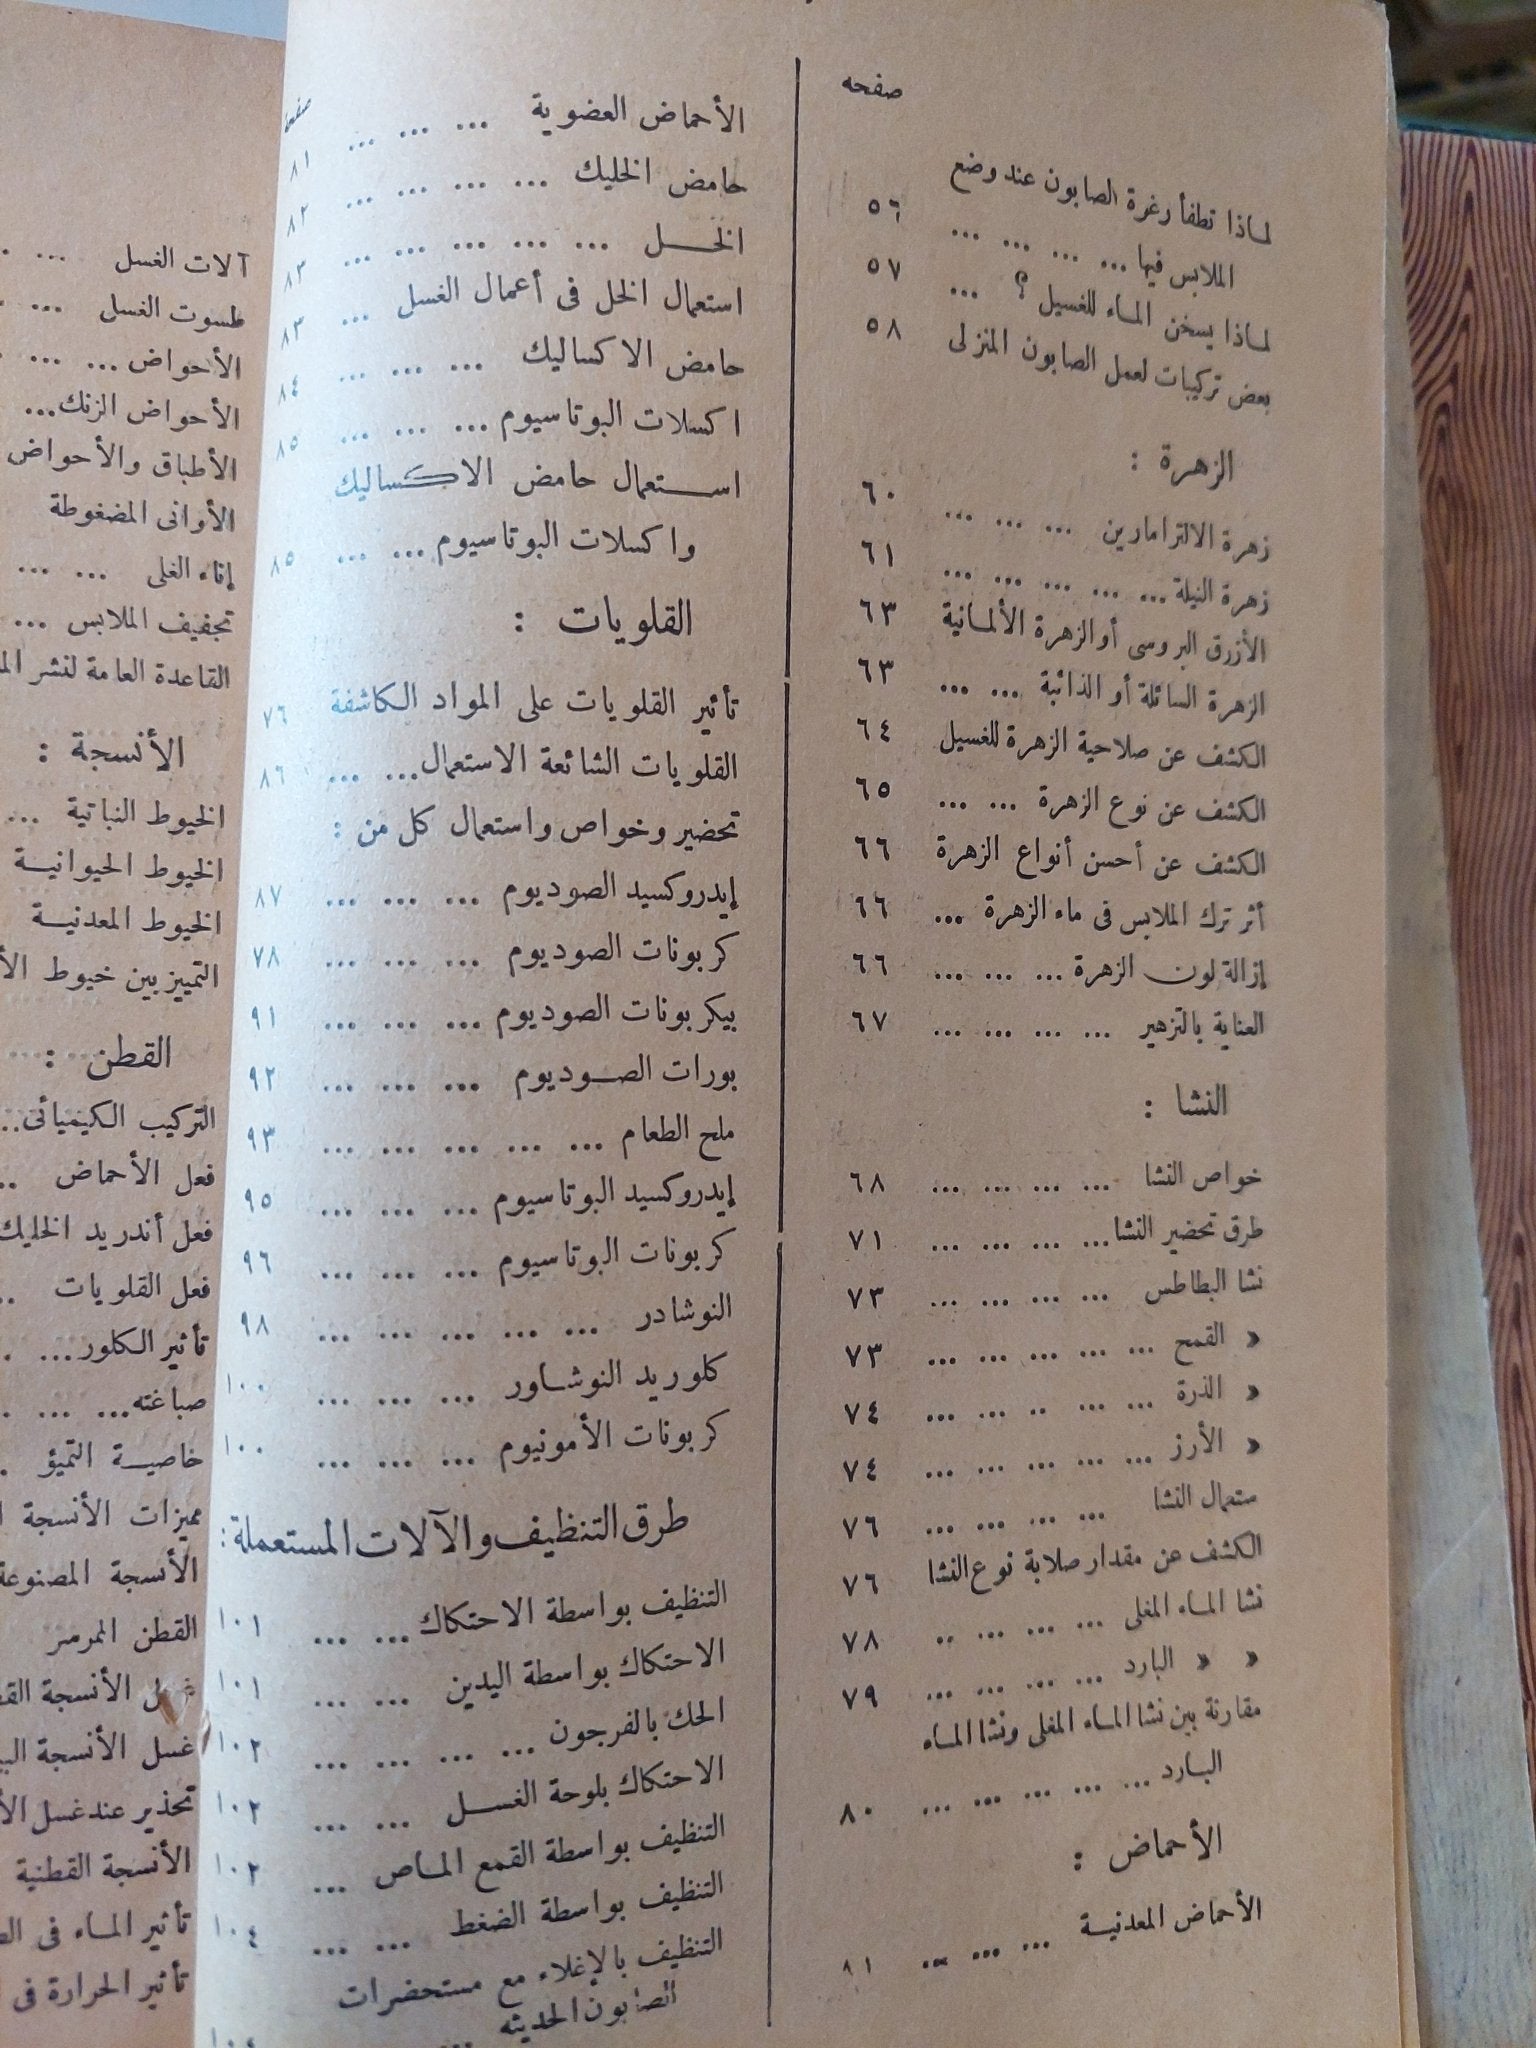 صفحه
لماذا تطفأ رغوة الصابون عند وضع
الملابس فيها ... ... ... ... ٥٦
لماذا يسخن الماء للغسيل ؟ ... ٥٧
بعض تركيبات لعمل الصابون المنزلى ٥٨
الزهرة :
زهرة الالترامارين ... ... ... ٦٠
زهرة النيلة ... ... ... ... ... ٦١
الأزرق البروسى أو الزهرة الألمانية ٦٣
الزهرة السائلة أو الذائبة ... ... ٦٣
الكشف عن صلاحية الزهرة للغسيل ٦٤
الكشف عن نوع الزهرة ... ... ٦٥
الكشف عن أحسن أنواع الزهرة ٦٦
أثر ترك الملابس فى ماء الزهرة ... ٦٦
إزالة لون الزهرة ... ... ... ٦٦
العناية بالتزهير ... ... ... ... ٦٧
النشا :
خواص النشا ... ... ... ... ٦٨
طرق تحضير النشا ... ... ... ... ٧١
نشا البطاطس ... ... ... ... ٧٣
» القمح ... ... ... ... ... ٧٣
» الذرة ... ... .. ... ... ٧٤
» الأرز ... ... ... ... ... ٧٤
ستعمال النشا ... ... ... ... ٧٦
الكشف عن مقدار صلابة نوع النشا ٧٦
نشا الماء المغلى ... ... ... .. ٧٨
» » البارد ... ... ... ... ٧٩
مقارنة بين نشا الماء المغلى ونشا الماء
البارد ... ... ... ... ... ٨٠
الأحماض :
الأحماض المعدنية ... ... ... ٨١
صفحة
الأحماض العضوية ... ... ... ٨١
حامض الخليك ... ... ... ... ٨٢
الخل ... ... ... ... ... ... ٨٣
استعمال الخل فى أعمال الغسل ... ٨٣
حامض الاكساليك ... ... ... ٨٤
اكسلات البوتاسيوم ... ... ... ٨٥
استعمال حامض الاكساليك
واكسلات البوتاسيوم ... ... ٨٥
القلويات :
تأثير القلويات على المواد الكاشفة ٧٦
القلويات الشائعة الاستعمال ... ... ٨٦
تحضير وخواص واستعمال كل من :
إيدروكسيد الصوديوم ... ... ... ٨٧
كربونات الصوديوم ... ... ... ٧٨
بيكربونات الصوديوم ... ... ... ٩١
بورات الصوديوم ... ... ... ٩٢
ملح الطعام ... ... ... ... ... ٩٣
إيدروكسيد البوتاسيوم ... ... ... ٩٥
كربونات البوتاسيوم ... ... ... ٩٦
النوشادر ... ... ... ... ... ٩٨
كلوريد النوشاور ... ... ... ١٠٠
كربونات الأمونيوم ... ... ... ١٠٠
طرق التنظيف والآلات المستعملة :
التنظيف بواسطة الاحتكاك ... ... ١٠١
الاحتكاك بواسطة اليدين ... ... ١٠١
الحك بالفرجون ... ... ... ... ١٠٢
الاحتكاك بلوحة الغسل ... ... ١٠٢
التنظيف بواسطة القمع الماص ... ١٠٢
التنظيف بواسطة الضغط ... ... ١٠٤
التنظيف بالإغلاء مع مستحضرات
الصابون الحديثه ...
آلات الغسل ...
طسوت الغسل ...
الأحواض ... ... ...
الأحواض الزنك ...
الأطباق والأحواض
الأوانى المضغوطة
إناء الغلى ... ...
تجفيف الملابس ...
القاعدة العامة لنشر
الأنسجة :
الخيوط النباتية ...
الخيوط الحيوانية
الخيوط المعدنية
التمييز بين خيوط
القطن :
التركيب الكيميائى ..
فعل الأحماض ..
فعل أندريد الخليك
فعل القلويات ..
تأثير الكلور ... .
صباغته ... ... .
خاصية التميؤ .
مميزات الأنسجة
الأنسجة المصنوعة
القطن الممرسر
الأنسجة
غسل الأنسجة
تحذير عند غسل
الأنسجة القطنية
تأثير الماء فى
تأثير الحرارة فى